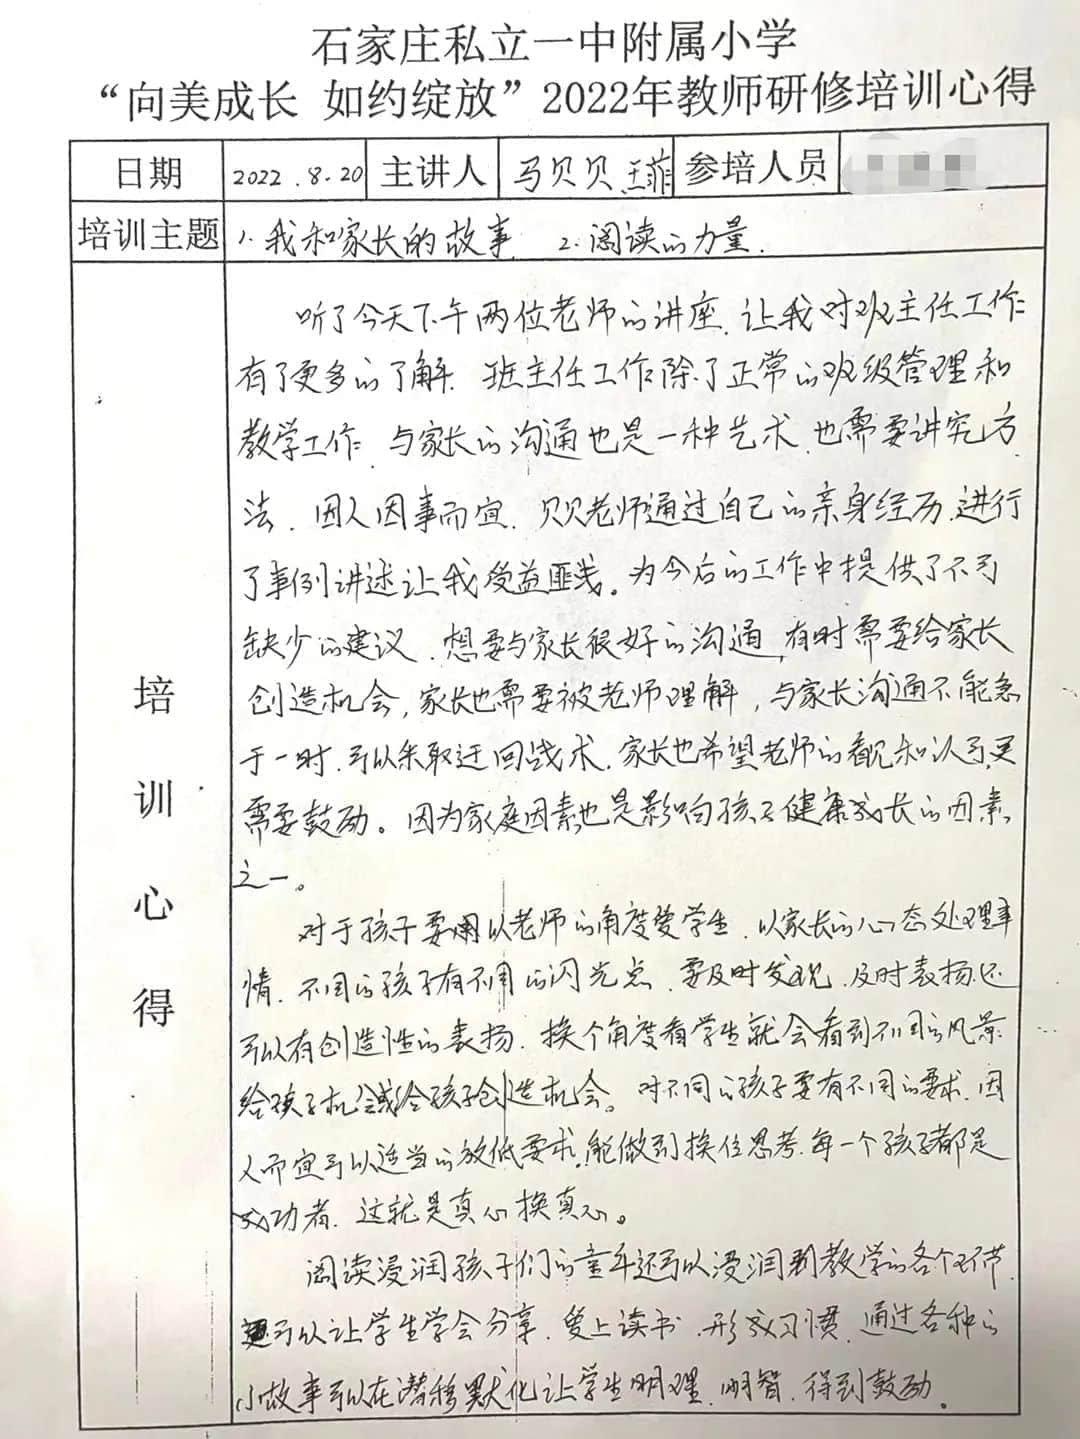 石家庄私立一中附属小学
“向美成长 如约绽放”2022年教师研修培训心得
日期 2022.8.20 主讲人 马贝贝 王菲 参培人员
培训主题 1.我和家长的故事 2.阅读的力量.
培训心得
听了今天下午两位老师的讲座,让我对班主任工作
有了更多的了解.班主任工作除了正常的班级管理和
教学工作,与家长的沟通也是一种艺术,也需要讲究方
法.因人因事而宜.贝贝老师通过自己的亲身经历,进行
了事例讲述让我受益匪浅。为今后的工作中提供了不可
缺少的建议.想要与家长很好的沟通,有时需要给家长
创造机会,家长也需要被老师理解,与家长沟通不能急
于一时,可以采取迂回战术.家长也希望老师的看见和认可,更
需要鼓励。因为家庭因素也是影响孩子健康成长的因素
之一。
对于孩子要用以老师的角度爱学生,以家长的心态处理事
情.不同的孩子有不同的闪光点,要及时发现,及时表扬,还
可以有创造性的表扬.换个角度看学生就会看到不同的风景
给孩子机会或给孩子创造机会。对不同的孩子要有不同的要求.因
人而宜可以适当的放低要求,能做到换位思考.每一个孩子都是
成功者.这就是真心换真心。
阅读浸润孩子们的童年还可以浸润到教学的各个环节,
更可以让学生学会分享.爱上读书.形成习惯.通过各种的
小故事可以在潜移默化让学生明理.明智.得到鼓励.